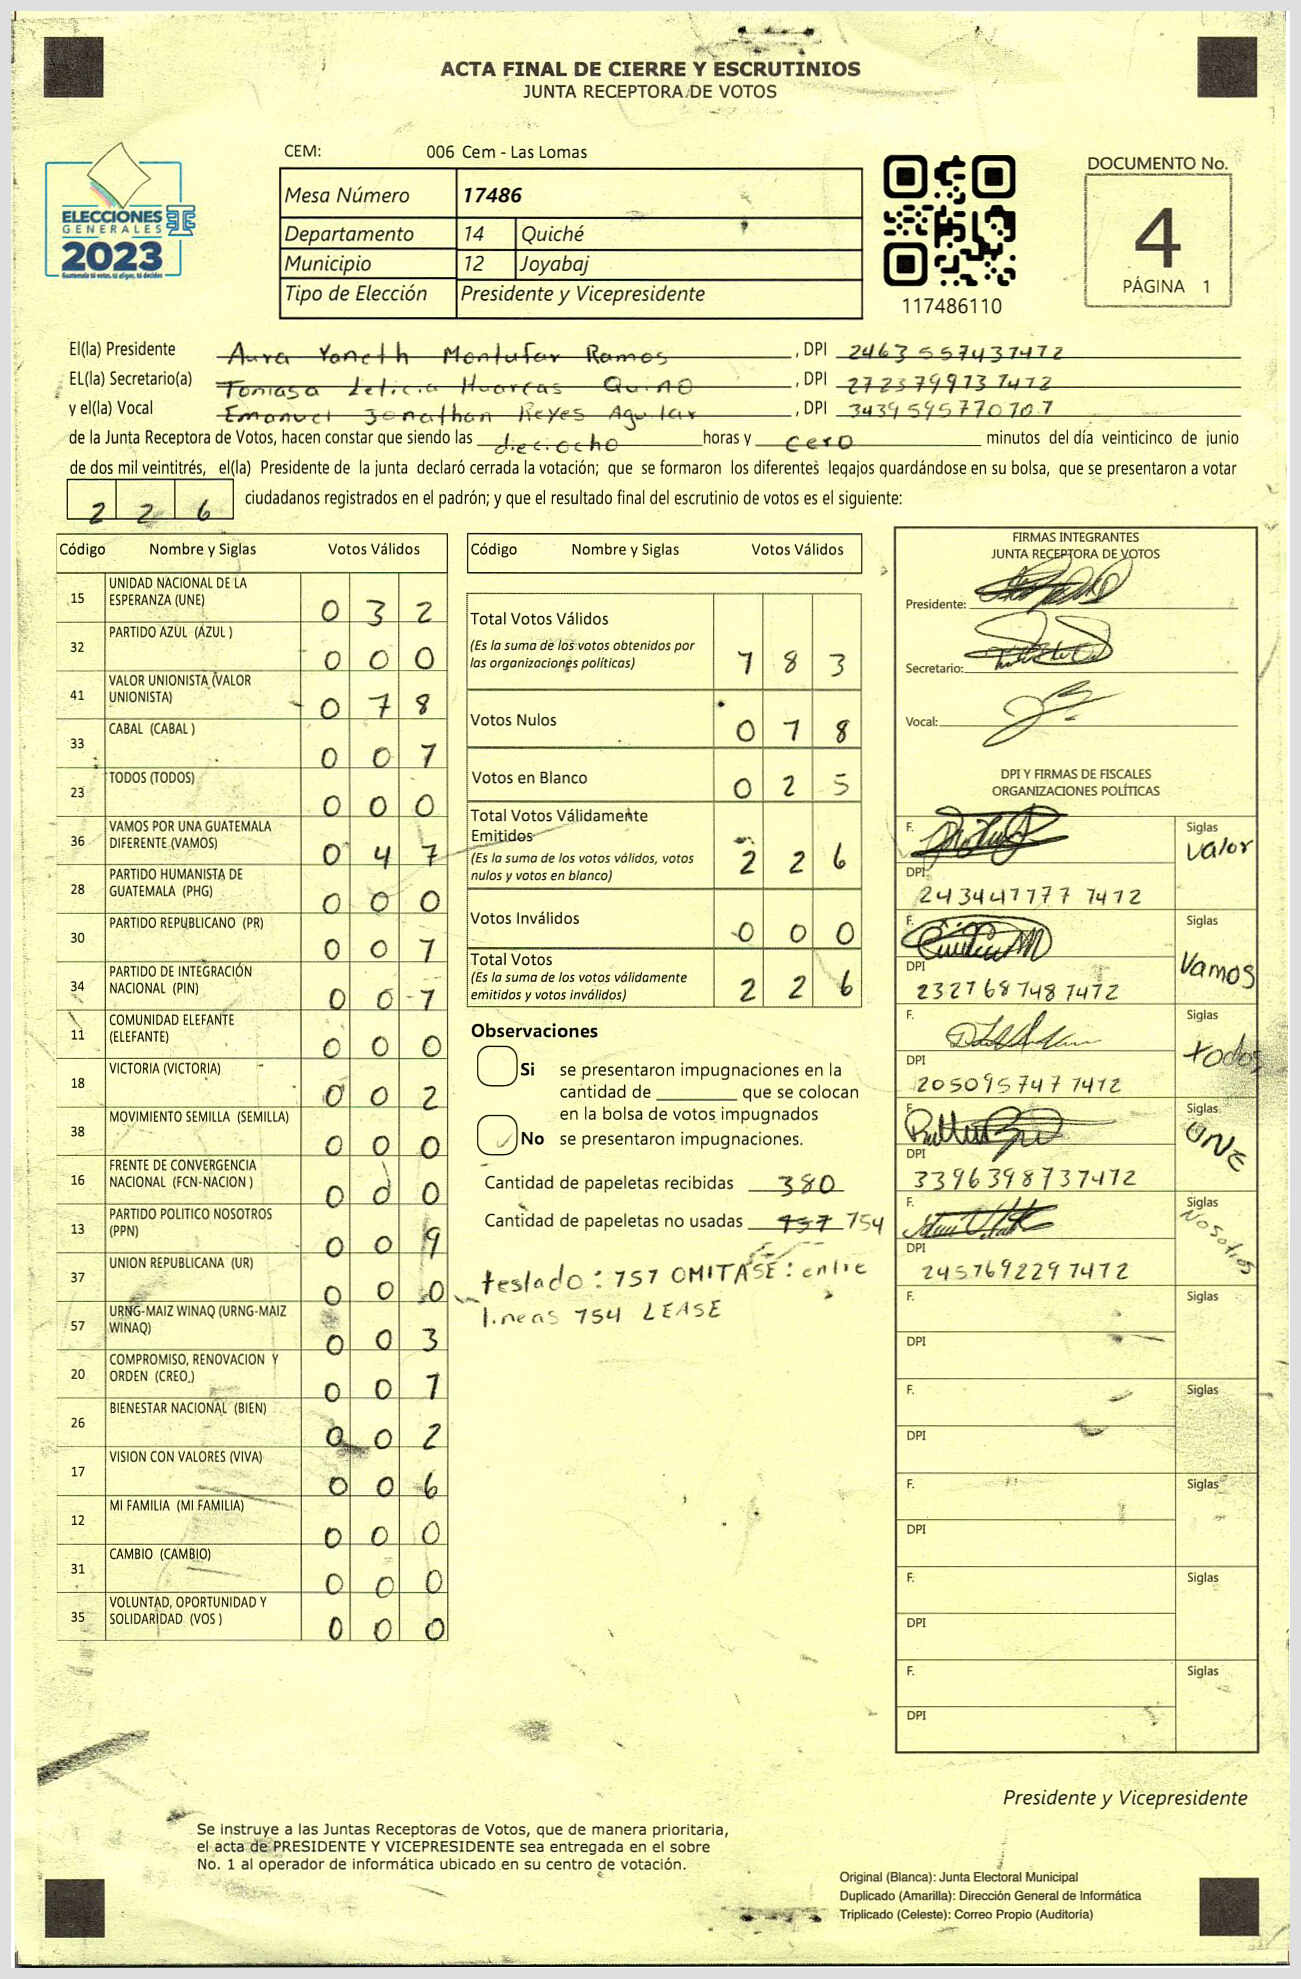 ACTA FINAL DE CIERRE Y ESCRUTINIOS
JUNTA RECEPTORA DE VOTOS
CEM: 006 Cem - Las Lomas
Mesa Número 17486
Departamento 14 Quiché
Municipio 12 Joyabaj
Tipo de Elección Presidente y Vicepresidente
ELECCIONES
GENERALES
2023
117486110
DOCUMENTO No.
4
PÁGINA 1
El(la) Presidente Aura Yaneth Montufar Ramos, DPI 2463557437472
EL(la) Secretario(a) Tomasa Leticia Huarcas Quino, DPI 2723799737472
y el(la) Vocal Emanuel Jonathan Reyes Aguilar, DPI 3439595770707
de la Junta Receptora de Votos, hacen constar que siendo las dieciocho horas y cero minutos del día veinticinco de junio
de dos mil veintitrés, el(la) Presidente de la junta declaró cerrada la votación; que se formaron los diferentes legajos guardándose en su bolsa, que se presentaron a votar
2 2 6 ciudadanos registrados en el padrón; y que el resultado final del escrutinio de votos es el siguiente:
Código Nombre y Siglas Votos Válidos
15 UNIDAD NACIONAL DE LA ESPERANZA (UNE) 0 3 2
32 PARTIDO AZUL (AZUL ) 0 0 0
41 VALOR UNIONISTA (VALOR UNIONISTA) 0 7 8
33 CABAL (CABAL ) 0 0 7
23 TODOS (TODOS) 0 0 0
36 VAMOS POR UNA GUATEMALA DIFERENTE (VAMOS) 0 4 7
28 PARTIDO HUMANISTA DE GUATEMALA (PHG) 0 0 0
30 PARTIDO REPUBLICANO (PR) 0 0 7
34 PARTIDO DE INTEGRACIÓN NACIONAL (PIN) 0 0 7
11 COMUNIDAD ELEFANTE (ELEFANTE) 0 0 0
18 VICTORIA (VICTORIA) 0 0 2
38 MOVIMIENTO SEMILLA (SEMILLA) 0 0 0
16 FRENTE DE CONVERGENCIA NACIONAL (FCN-NACION ) 0 0 0
13 PARTIDO POLITICO NOSOTROS (PPN) 0 0 9
37 UNION REPUBLICANA (UR) 0 0 0
57 URNG-MAIZ WINAQ (URNG-MAIZ WINAQ) 0 0 3
20 COMPROMISO, RENOVACION Y ORDEN (CREO ) 0 0 7
26 BIENESTAR NACIONAL (BIEN) 0 0 2
17 VISION CON VALORES (VIVA) 0 0 6
12 MI FAMILIA (MI FAMILIA) 0 0 0
31 CAMBIO (CAMBIO) 0 0 0
35 VOLUNTAD, OPORTUNIDAD Y SOLIDARIDAD (VOS ) 0 0 0
Código Nombre y Siglas Votos Válidos
Total Votos Válidos 7 8 3
(Es la suma de los votos obtenidos por
las organizaciones políticas)
Votos Nulos 0 7 8
Votos en Blanco 0 2 5
Total Votos Válidamente
Emitidos 2 2 6
(Es la suma de los votos válidos, votos
nulos y votos en blanco)
Votos Inválidos 0 0 0
Total Votos 2 2 6
(Es la suma de los votos válidamente
emitidos y votos inválidos)
Observaciones
Si se presentaron impugnaciones en la
cantidad de ________ que se colocan
en la bolsa de votos impugnados
No se presentaron impugnaciones.
Cantidad de papeletas recibidas 380
Cantidad de papeletas no usadas 757 754
teslado: 757 OMITASE: entre
lineas 754 LEASE
FIRMAS INTEGRANTES
JUNTA RECEPTORA DE VOTOS
Presidente:
Secretario:
Vocal:
DPI Y FIRMAS DE FISCALES
ORGANIZACIONES POLÍTICAS
F. Siglas Valor
DPI 2434477777472
F. Siglas Vamos
DPI 2327687487472
F. Siglas todos
DPI 2050957477472
F. Siglas UNE
DPI 3396398737472
F. Siglas Nosotros
DPI 2457692297472
F. Siglas
DPI
F. Siglas
DPI
F. Siglas
DPI
F. Siglas
DPI
F. Siglas
DPI
Presidente y Vicepresidente
Se instruye a las Juntas Receptoras de Votos, que de manera prioritaria,
el acta de PRESIDENTE Y VICEPRESIDENTE sea entregada en el sobre
No. 1 al operador de informática ubicado en su centro de votación.
Original (Blanca): Junta Electoral Municipal
Duplicado (Amarilla): Dirección General de Informática
Triplicado (Celeste): Correo Propio (Auditoria)